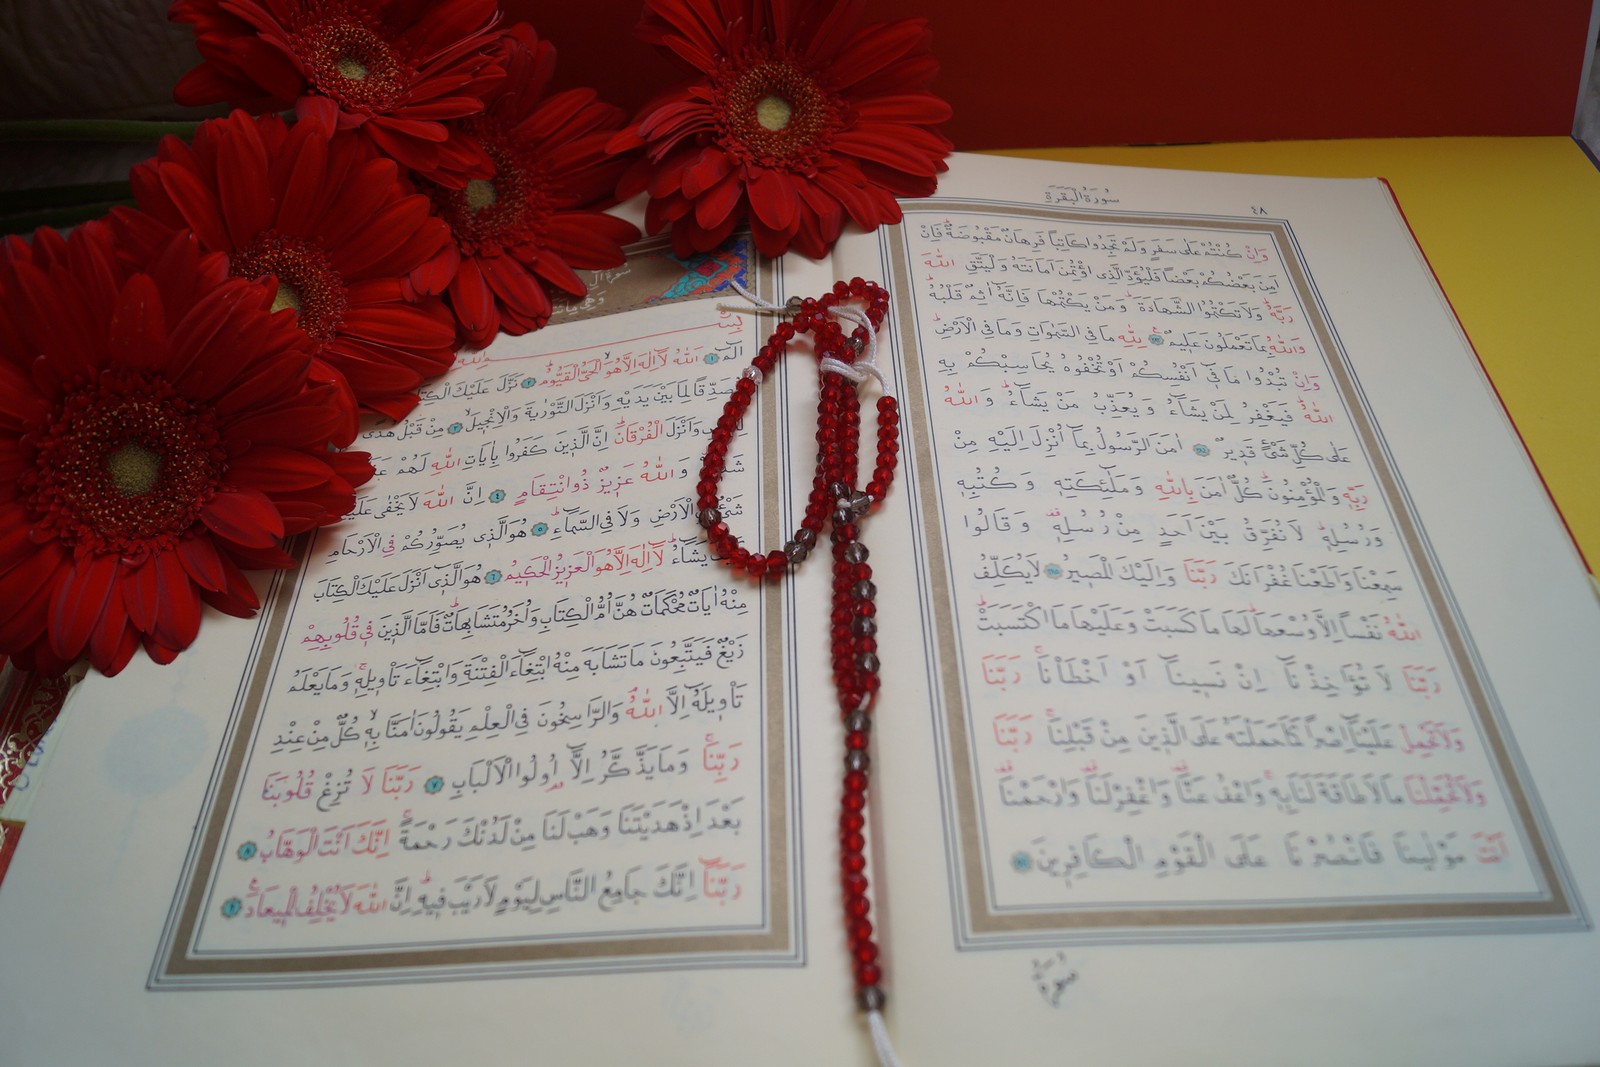 سُورَةُ الْبَقَرَةِ
٤٨
وَاِنْ كُنْتُمْ عَلٰى سَفَرٍ وَلَمْ تَجِدُوا كَاتِبًا فَرِهَانٌ مَقْبُوضَةٌ فَاِنْ
اَمِنَ بَعْضُكُمْ بَعْضًا فَلْيُؤَدِّ الَّذِى اؤْتُمِنَ اَمَانَتَهُ وَلْيَتَّقِ اللّٰهَ
رَبَّهُ وَلَا تَكْتُمُوا الشَّهَادَةَ وَمَنْ يَكْتُمْهَا فَاِنَّهُ اٰثِمٌ قَلْبُهُ
وَاللّٰهُ بِمَا تَعْمَلُونَ عَلِيمٌ لِلّٰهِ مَا فِى السَّمٰوَاتِ وَمَا فِى الْاَرْضِ
وَاِنْ تُبْدُوا مَا فِى اَنْفُسِكُمْ اَوْ تُخْفُوهُ يُحَاسِبْكُمْ بِهِ
اللّٰهُ فَيَغْفِرُ لِمَنْ يَشَاءُ وَيُعَذِّبُ مَنْ يَشَاءُ وَاللّٰهُ
عَلٰى كُلِّ شَىْءٍ قَدِيرٌ اٰمَنَ الرَّسُولُ بِمَا اُنْزِلَ اِلَيْهِ مِنْ
رَبِّهِ وَالْمُؤْمِنُونَ كُلٌّ اٰمَنَ بِاللّٰهِ وَمَلٰئِكَتِهِ وَكُتُبِهِ
وَرُسُلِهِ لَا نُفَرِّقُ بَيْنَ اَحَدٍ مِنْ رُسُلِهِ وَقَالُوا
سَمِعْنَا وَاَطَعْنَا غُفْرَانَكَ رَبَّنَا وَاِلَيْكَ الْمَصِيرُ لَا يُكَلِّفُ
اللّٰهُ نَفْسًا اِلَّا وُسْعَهَا لَهَا مَا كَسَبَتْ وَعَلَيْهَا مَا اكْتَسَبَتْ
رَبَّنَا لَا تُؤَاخِذْنَا اِنْ نَسِينَا اَوْ اَخْطَأْنَا رَبَّنَا
وَلَا تَحْمِلْ عَلَيْنَا اِصْرًا كَمَا حَمَلْتَهُ عَلَى الَّذِينَ مِنْ قَبْلِنَا رَبَّنَا
وَلَا تُحَمِّلْنَا مَا لَا طَاقَةَ لَنَا بِهِ وَاعْفُ عَنَّا وَاغْفِرْ لَنَا وَارْحَمْنَا
اَنْتَ مَوْلٰينَا فَانْصُرْنَا عَلَى الْقَوْمِ الْكَافِرِينَ
سُورَةُ
الٓمٓ اَللّٰهُ لَا اِلٰهَ اِلَّا هُوَ الْحَىُّ الْقَيُّومُ نَزَّلَ عَلَيْكَ
مُصَدِّقًا لِمَا بَيْنَ يَدَيْهِ وَاَنْزَلَ التَّوْرٰيةَ وَالْاِنْجِيلَ مِنْ قَبْلُ هُدًى
وَاَنْزَلَ الْفُرْقَانَ اِنَّ الَّذِينَ كَفَرُوا بِاٰيَاتِ اللّٰهِ لَهُمْ
وَاللّٰهُ عَزِيزٌ ذُو انْتِقَامٍ اِنَّ اللّٰهَ لَا يَخْفٰى عَلَيْهِ
شَىْءٌ الْاَرْضِ وَلَا فِى السَّمَاءِ هُوَ الَّذِى يُصَوِّرُكُمْ فِى الْاَرْحَامِ
يَشَاءُ لَا اِلٰهَ اِلَّا هُوَ الْعَزِيزُ الْحَكِيمُ هُوَ الَّذِى اَنْزَلَ عَلَيْكَ الْكِتَابَ
مِنْهُ اٰيَاتٌ مُحْكَمَاتٌ هُنَّ اُمُّ الْكِتَابِ وَاُخَرُ مُتَشَابِهَاتٌ فَاَمَّا الَّذِينَ فِى قُلُوبِهِمْ
زَيْغٌ فَيَتَّبِعُونَ مَا تَشَابَهَ مِنْهُ ابْتِغَاءَ الْفِتْنَةِ وَابْتِغَاءَ تَأْوِيلِهِ وَمَا يَعْلَمُ
تَأْوِيلَهُ اِلَّا اللّٰهُ وَالرَّاسِخُونَ فِى الْعِلْمِ يَقُولُونَ اٰمَنَّا بِهِ كُلٌّ مِنْ عِنْدِ
رَبِّنَا وَمَا يَذَّكَّرُ اِلَّا اُولُوا الْاَلْبَابِ رَبَّنَا لَا تُزِغْ قُلُوبَنَا
بَعْدَ اِذْ هَدَيْتَنَا وَهَبْ لَنَا مِنْ لَدُنْكَ رَحْمَةً اِنَّكَ اَنْتَ الْوَهَّابُ
رَبَّنَا اِنَّكَ جَامِعُ النَّاسِ لِيَوْمٍ لَا رَيْبَ فِيهِ اِنَّ اللّٰهَ لَا يُخْلِفُ الْمِيعَادَ